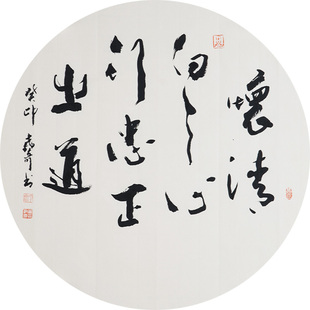 懷清
白之心
行忠正
之道
癸卯 书